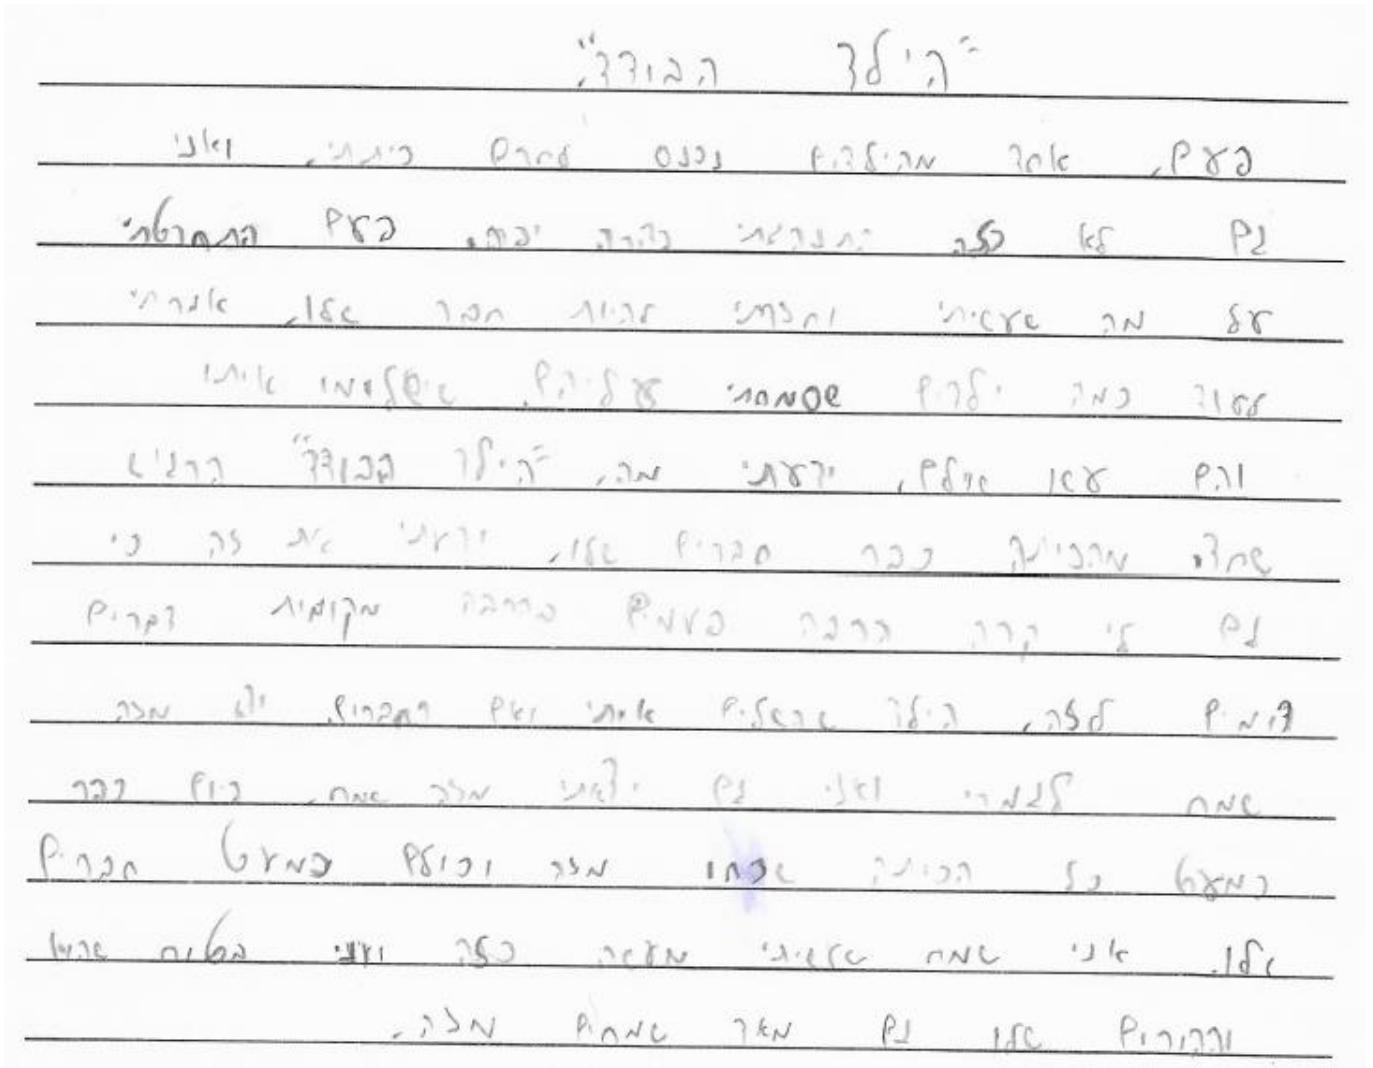 "הילד הבודד".
פעם, אחד מהילדים נכנס לחרם כיתתי, ואני
גם לא כזה התנהגתי בצורה יפה. פעם התחרטתי
על מה שעשיתי וחזרתי להיות חבר שלו, אמרתי
לעוד כמה ילדים שסמכתי עליהם, שישלימו איתו
והם עשו שולם, ידעתי מה, "הילד הבודד" הרגיש
שחצי מהכיתה כבר חברים שלו, ידעתי את זה כי
גם לי קרה הרבה פעמים בהרבה מקומות דברים
דומים לזה, הילד שהשלים איתי ואם החברים, יצא מזה
שמח לגמרי ואני גם יצאתי מזה שמח, כיום כבר
כמעט כל הכיתה שכחו מזה וכולם כמעט חברים
שלו, אני שמח שעשיתי מעשה כזה ואני בטוח שהוא
וההורים שלו גם מאד שמחים מזה.